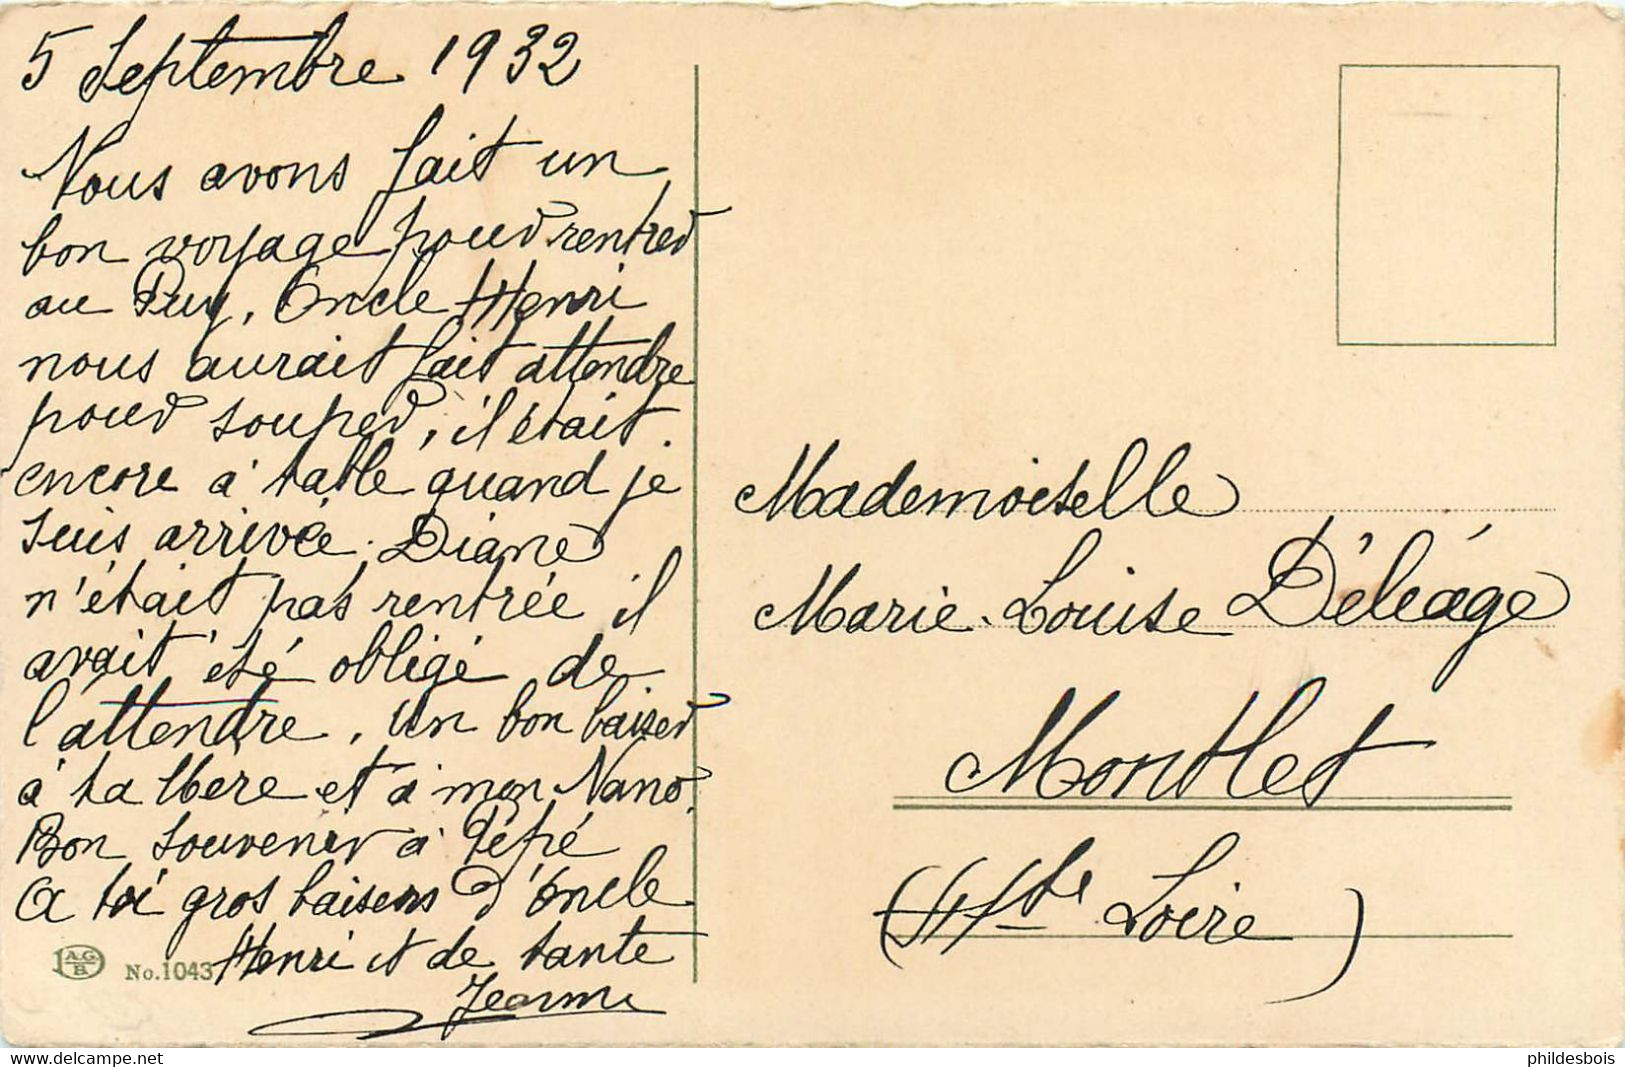 5 Septembre 1932
Nous avons fait un
bon voyage pour rentrer
au Puy, Oncle Henri
nous aurait fait attendre
pour souper, il était
encore à table quand je
suis arrivée. Diane
n'était pas rentrée il
avait été obligé de
l'attendre. Un bon baiser
à ta Mère et à mon Nano.
Bon souvenir à Pépé
A toi gros baisers d'Oncle
Henri et de tante
Jeanne
A.G.
B.
No. 1043
Mademoiselle
Marie-Louise Déléage
Montlet
(Hte Loire)
phildesbois